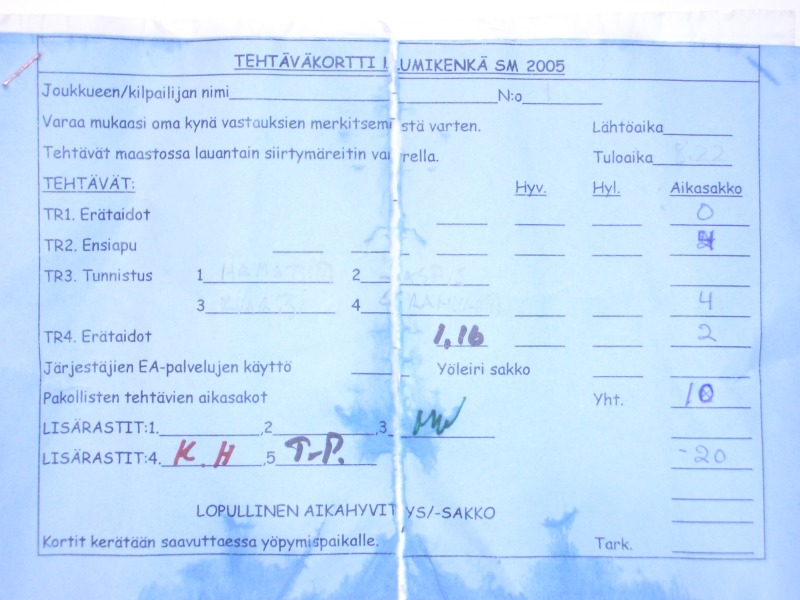 TEHTÄVÄKORTTI LUMIKENKÄ SM 2005
Joukkueen/kilpailijan nimi N:o
Varaa mukaasi oma kynä vastauksien merkitsemistä varten. Lähtöaika
Tehtävät maastossa lauantain siirtymäreitin varrella. Tuloaika 8.22
TEHTÄVÄT: Hyv. Hyl. Aikasakko
TR1. Erätaidot 0
TR2. Ensiapu
TR3. Tunnistus 1 2
3 4 4
TR4. Erätaidot 1,16 2
Järjestäjien EA-palvelujen käyttö Yöleiri sakko
Pakollisten tehtävien aikasakot Yht. 10
LISÄRASTIT:1. ,2 ,3
LISÄRASTIT:4. K.H ,5 T-P. -20
LOPULLINEN AIKAHYVITYS/-SAKKO
Kortit kerätään saavuttaessa yöpymispaikalle. Tark.